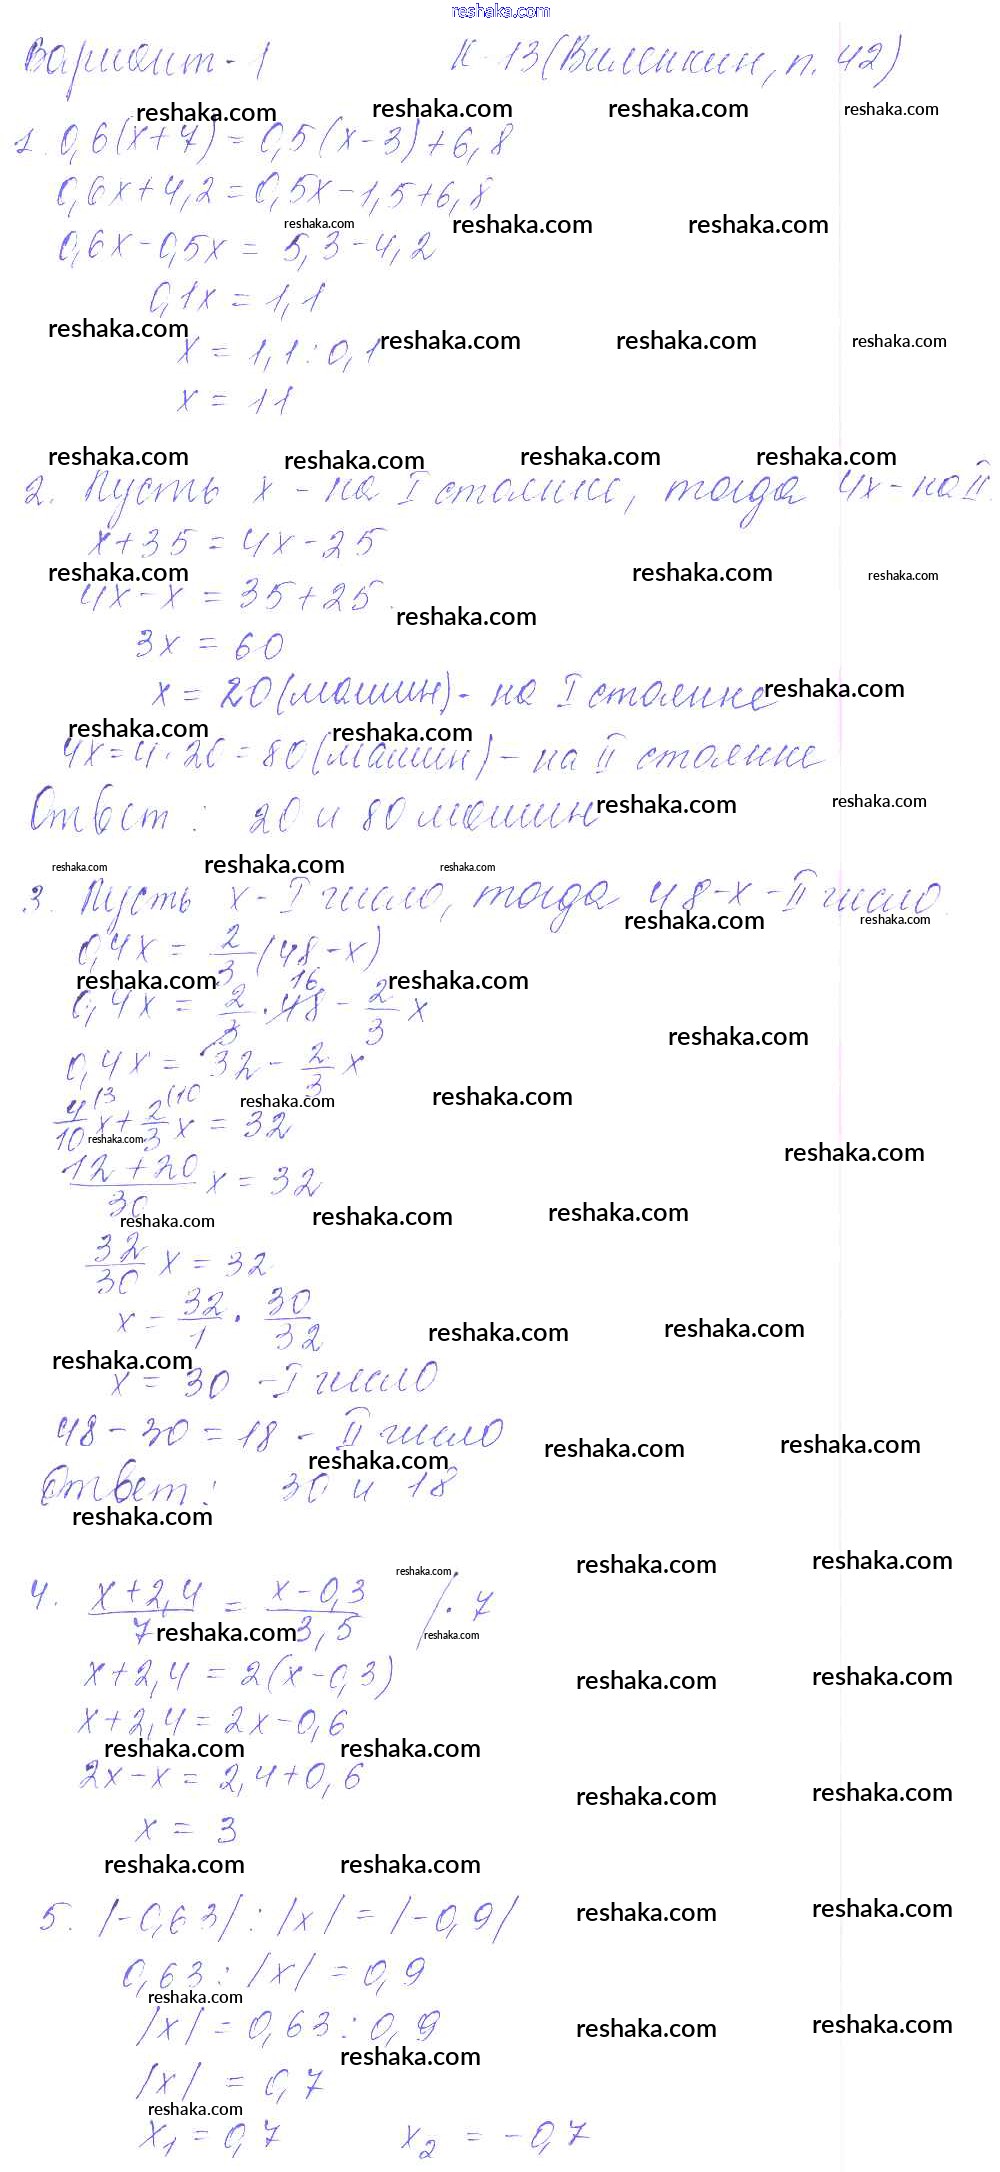 reshaka.com
Вариант - 1 К-13 (Виленкин, п. 42)
reshaka.com reshaka.com reshaka.com reshaka.com
1. 0,6(x+7) = 0,5(x-3)+6,8
0,6x+4,2 = 0,5x-1,5+6,8
reshaka.com reshaka.com reshaka.com
0,6x-0,5x = 5,3-4,2
0,1x = 1,1
reshaka.com reshaka.com reshaka.com reshaka.com
x = 1,1:0,1
x = 11
reshaka.com reshaka.com reshaka.com reshaka.com
2. Пусть x - на I стоянке, тогда 4x - на II.
x+35 = 4x-25
reshaka.com reshaka.com reshaka.com
4x-x = 35+25
reshaka.com
3x = 60
x = 20 (машин) - на I стоянке reshaka.com
reshaka.com reshaka.com
4x=4·20=80 (машин) - на II стоянке
Ответ: 20 и 80 машин reshaka.com reshaka.com
reshaka.com reshaka.com reshaka.com
3. Пусть x - I число, тогда 48-x - II число.
reshaka.com reshaka.com
0,4x = 2/3 (48-x)
reshaka.com reshaka.com
0,4x = 2/3 · 48 16 - 2/3 x
reshaka.com
0,4x = 32 - 2/3 x
reshaka.com reshaka.com
4/10 (3 x + 2/3 (10 x = 32
reshaka.com reshaka.com
12+20/30 x = 32
reshaka.com reshaka.com reshaka.com
32/30 x = 32
x = 32/1 · 30/32
reshaka.com reshaka.com reshaka.com
x = 30 - I число
48-30 = 18 - II число
reshaka.com reshaka.com reshaka.com
Ответ: 30 и 18
reshaka.com
reshaka.com reshaka.com reshaka.com
4. x+2,4/7 = x-0,3/3,5 /·7
reshaka.com reshaka.com
x+2,4 = 2(x-0,3)
reshaka.com reshaka.com
x+2,4 = 2x-0,6
reshaka.com reshaka.com
2x-x = 2,4+0,6
reshaka.com reshaka.com
x = 3
reshaka.com reshaka.com
5. |-0,63| : |x| = |-0,9|
reshaka.com reshaka.com
0,63 : |x| = 0,9
reshaka.com
|x| = 0,63 : 0,9
reshaka.com reshaka.com
reshaka.com
|x| = 0,7
reshaka.com
x1 = 0,7 x2 = -0,7